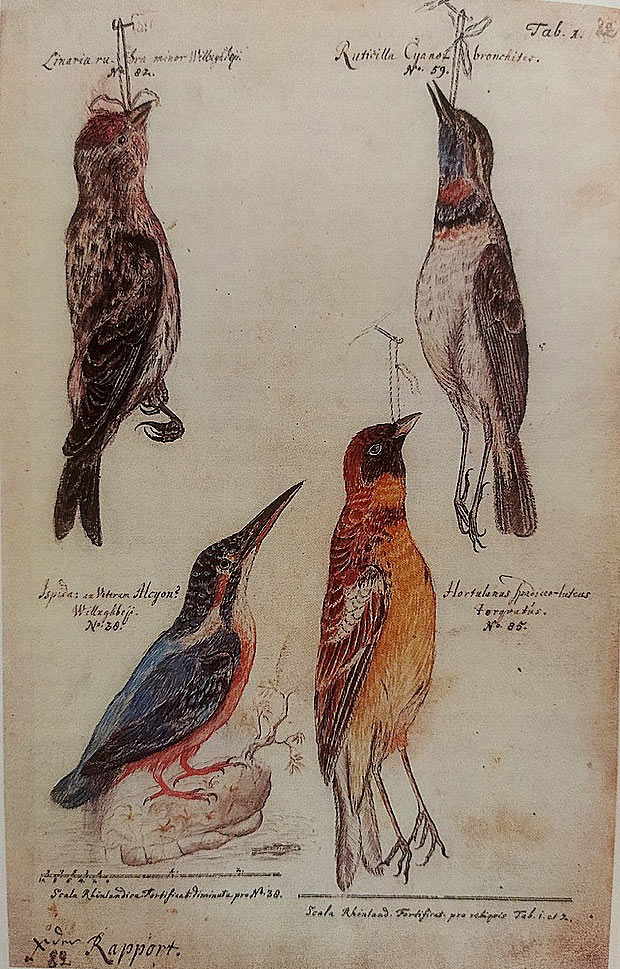 Tab. 1.
Linaria rubra minor Willughbeji.
No. 82.
Ruticilla Cyanos bronchites.
No. 59.
Ispida: an Veterum Alcyon?
Willughbeji.
No. 38.
Hortulanus spadiceo-luteus
torquatus.
No. 85.
Scala Rhinlandica Fortificat: diminuta, pro No. 38.
Scala Rhinland. Fortificat. pro reliquis Tab. 1. et 2.
Rapport.
82